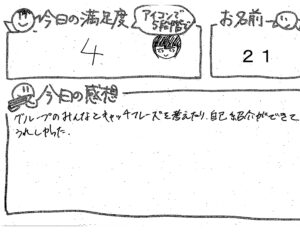 今日の満足度
アイコンで
5段階で
お名前
4
21
今日の感想
グループのみんなとキャッチフレーズを考えたり、自己紹介ができて
うれしかった。